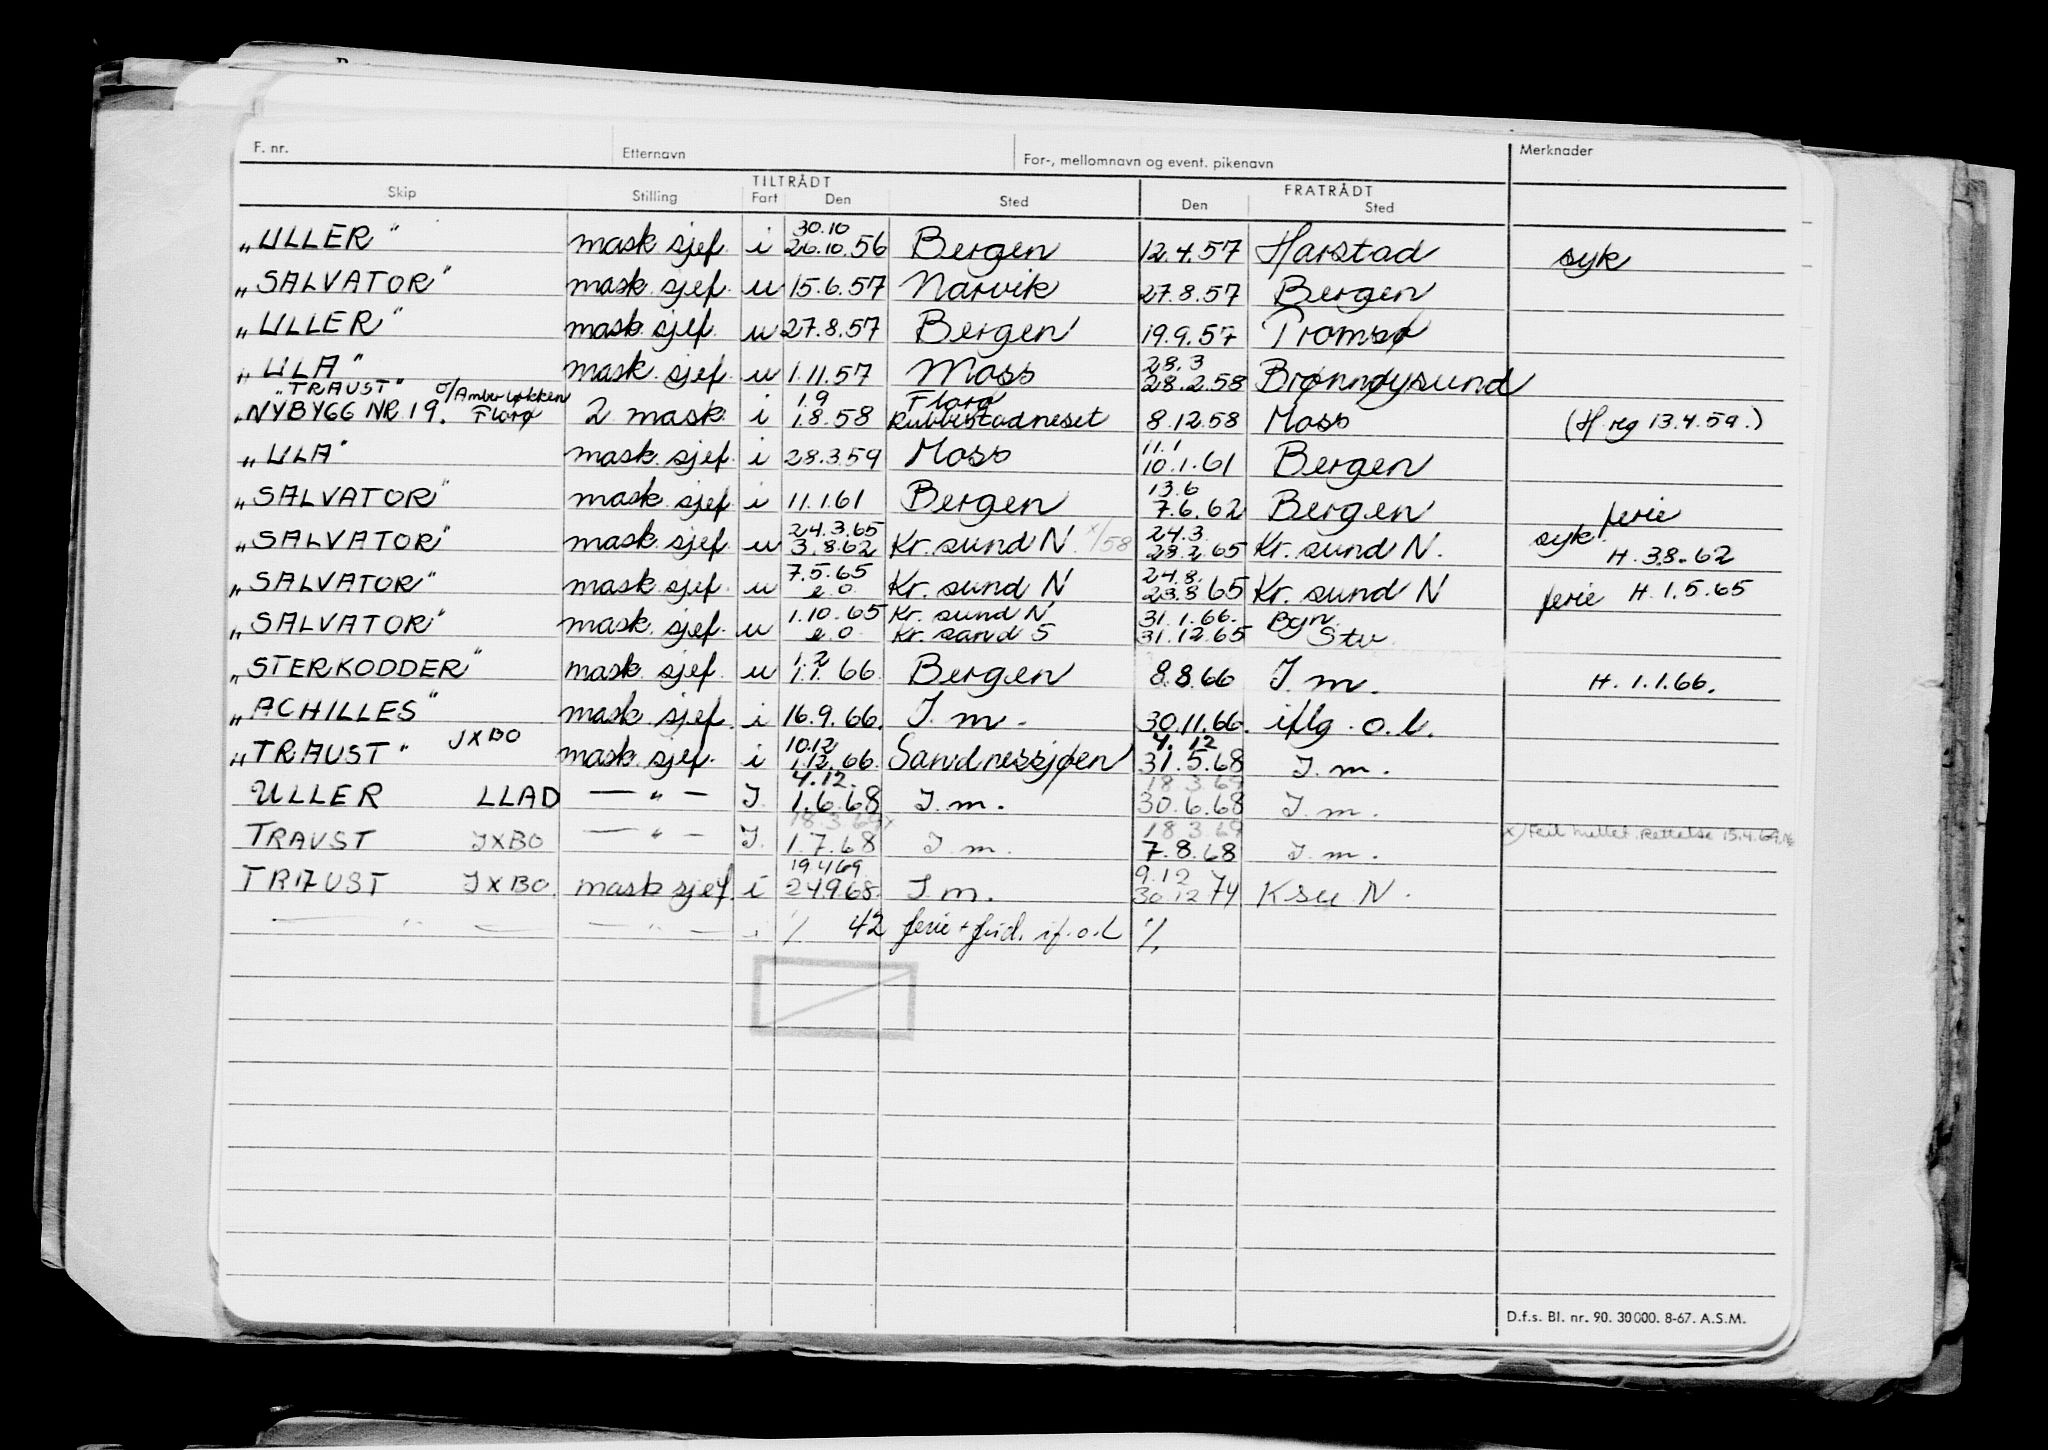 F. nr. Etternavn For-, mellomnavn og event. pikenavn Merknader
TILTRÅDT FRATRÅDT
Skip Stilling Fart Den Sted Den Sted
30.10
„ULLER" mask. sjef. i 26.10.56 Bergen 12.4.57 Harstad syk
„SALVATOR" mask. sjef. u 15.6.57 Narvik 27.8.57 Bergen
„ULLER" mask. sjef. u 27.8.57 Bergen 19.9.57 Tromsø
28.3
„ULA" mask. sjef. u 1.11.57 Moss 28.2.58 Brønnøysund
„TRAUST" 1.9 Florø
„NYBYGG NR. 19. Florø 2 mask. i 1.8.58 Rubbestadneset 8.12.58 Moss (H. reg 13.4.59.)
11.1
„ULA" mask. sjef. i 28.3.59 Moss 10.1.61 Bergen
13.6
„SALVATOR" mask. sjef. i 11.1.61 Bergen 7.6.62 Bergen ferie
24.3.65 24.3
„SALVATOR" mask. sjef. u 3.8.62 Kr. sund N. x/58 28.2.65 Kr. sund N. syk. H. 3.8.62
7.5.65 24.8.
„SALVATOR" mask. sjef. u e o Kr. sund N 23.8 65 Kr. sund N ferie H. 1.5.65
1.10.65 Kr. sund N 31.1.66. Bgn.
„SALVATOR" mask. sjef. u e o Kr. sand S 31.12.65 Stv.
1.2
„STERKODDER" mask. sjef. u 1.1.66 Bergen 8.8.66 I. m. H. 1.1.66.
„ACHILLES" mask. sjef. i 16.9.66. I. m. 30.11.66. iflg. o.l.
10.12 4.12
„TRAUST" JXBO mask. sjef. i 1.12.66. Sandnessjøen 31.5.68 I. m.
4.12. 18.3.69
ULLER LLAD — " — I. 1.6.68 I. m. 30.6.68 I. m.
18.3.69x 18.3.69
TRAUST JXBO — " — I. 1.7.68 I. m. 7.8.68 I. m. x) Feil Rettelse 15.4.69.
19.4.69 9.12
TRAUST JXBO. mask sjef. i 24.9.68. I m. 30.12 74 Ksu N.
— " — — " — % 42 ferie + frid. if. o.l %
D.f.s. Bl. nr. 90. 30000. 8-67. A.S.M.